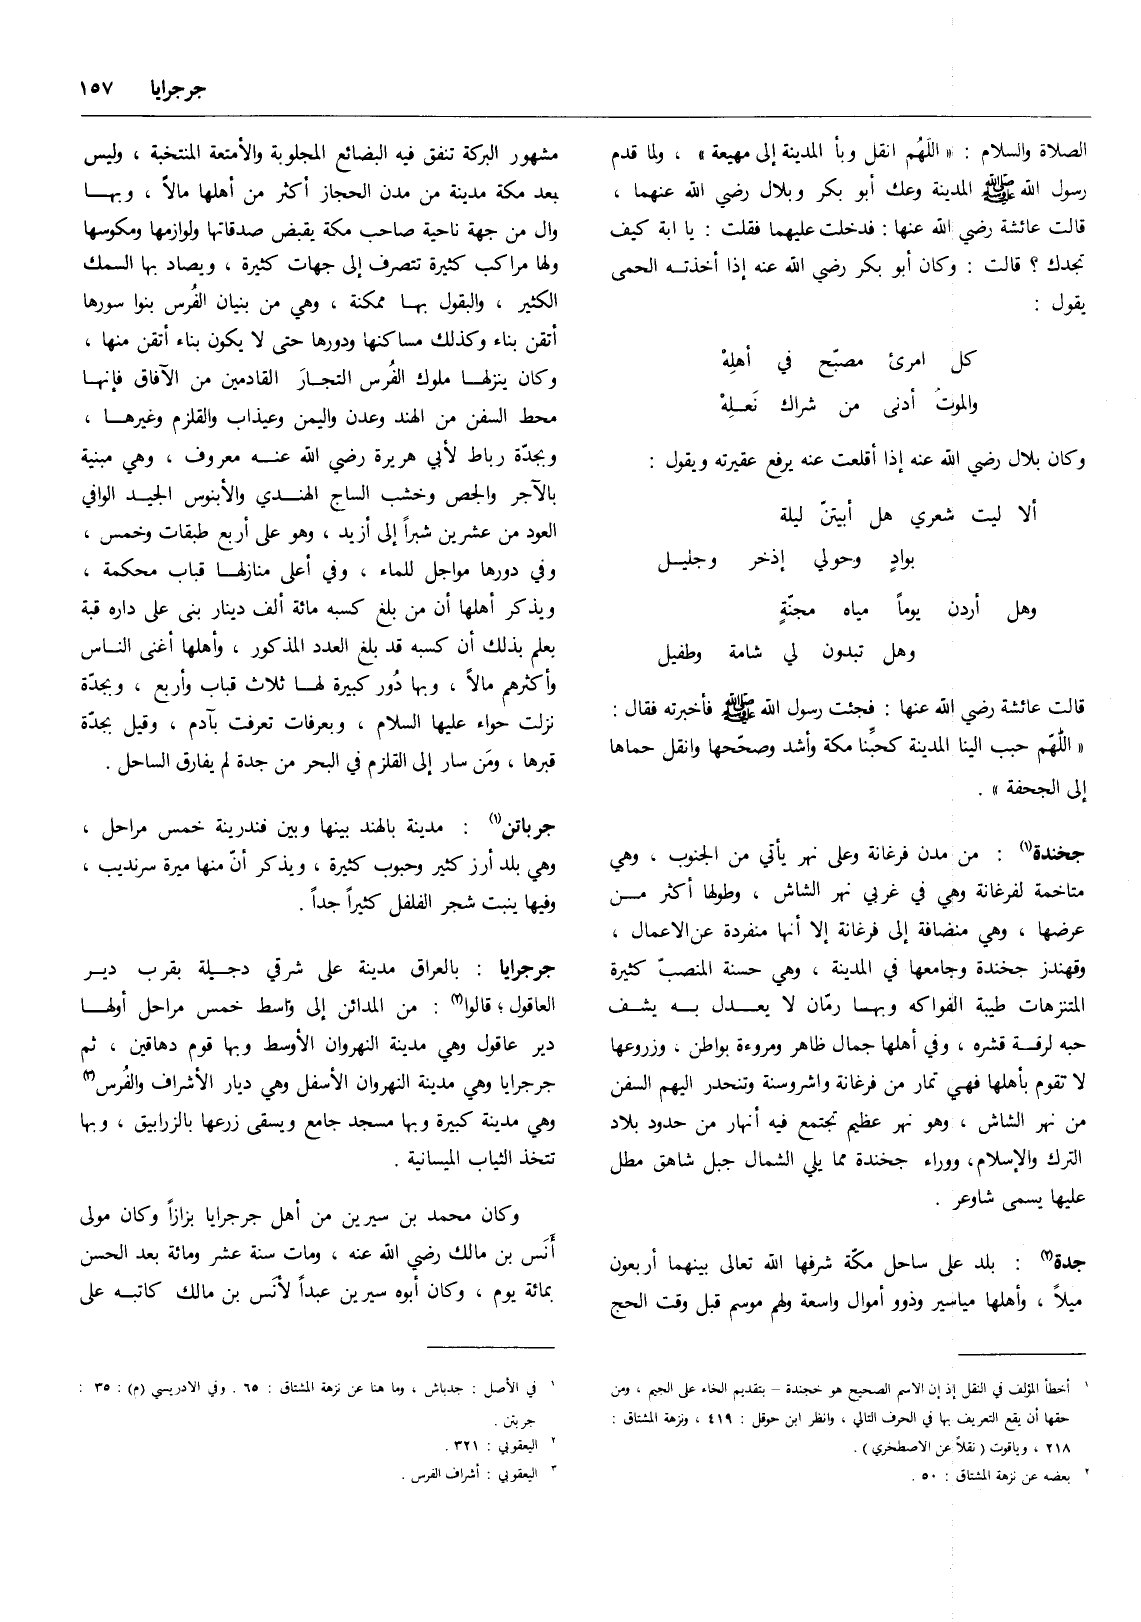 جرجرايا ١٥٧
الصلاة والسلام : « اللَهُم انقل وبأ المدينة إلى مهيعة » ، ولما قدم
رسول الله ﷺ المدينة وعك أبو بكر وبلال رضي الله عنهما ،
قالت عائشة رضي الله عنها : فدخلت عليهما فقلت : يا ابة كيف
تجدك ؟ قالت : وكان أبو بكر رضي الله عنه إذا أخذتـه الحمى
يقول :
كل امرئ مصبّح في أهلِهْ
والموتُ أدنى من شراك نَعـلِهْ
وكان بلال رضي الله عنه إذا أقلعت عنه يرفع عقيرته ويقول :
ألا ليت شعري هل أبيتنّ ليلة
بوادٍ وحولي إذخر وجليـل
وهل أردن يوماً مياه مجنّةٍ
وهل تبدون لي شامة وطفيل
قالت عائشة رضي الله عنها : فجئت رسول الله ﷺ فأخبرته فقال :
« اللّهّم حبب الينا المدينة كحبِّنا مكة وأشد وصحّحها وانقل حماها
إلى الجحفة » .
جخندة(١) : من مدن فرغانة وعلى نهر يأتي من الجنوب ، وهي
متاخمة لفرغانة وهي في غربي نهر الشاش ، وطولها أكثر مـن
عرضها ، وهي منضافة إلى فرغانة إلا أنها منفردة عن الاعمال ،
وقهندز جخندة وجامعها في المدينة ، وهي حسنة المنصبّ كثيرة
المتنزهات طيبة الفواكه وبهـا رمّان لا يعـدل بـه يشف
حبه لرقـة قشره ، وفي أهلها جمال ظاهر ومروءة بواطن ، وزروعها
لا تقوم بأهلها فهي تمار من فرغانة واشروسنة وتنحدر اليهم السفن
من نهر الشاش ، وهو نهر عظيم تجتمع فيه أنهار من حدود بلاد
الترك والإسلام، ووراء جخندة مما يلي الشمال جبل شاهق مطل
عليها يسمى شاوعر .
جدة(٢) : بلد على ساحل مكّة شرفها الله تعالى بينهما أربعون
ميلاً ، وأهلها مياسير وذوو أموال واسعة ولهم موسم قبل وقت الحج
١ أخطأ المؤلف في النقل إذ إن الاسم الصحيح هو خجندة – بتقديم الخاء على الجيم ، ومن
حقها أن يقع التعريف بها في الحرف التالي ، وانظر ابن حوقل : ٤١٩ ، ونزهة المشتاق :
٢١٨ ، وياقوت ( نقلاً عن الاصطخري ) .
٢ بعضه عن نزهة المشتاق : ٥٠ .
مشهور البركة تنفق فيه البضائع المجلوبة والأمتعة المنتخبة ، وليس
بعد مكة مدينة من مدن الحجاز أكثر من أهلها مالاً ، وبهـا
وال من جهة ناحية صاحب مكة يقبض صدقاتها ولوازمها ومكوسها
ولها مراكب كثيرة تتصرف إلى جهات كثيرة ، ويصاد بها السمك
الكثير ، والبقول بهـا ممكنة ، وهي من بنيان الفُرس بنوا سورها
أتقن بناء وكذلك مساكنها ودورها حتى لا يكون بناء أتقن منها ،
وكان ينزلهـا ملوك الفُرس التجـارَ القادمين من الآفاق فإنهـا
محط السفن من الهند وعدن واليمن وعيذاب والقلزم وغيرهـا ،
وبجدّة رباط لأبي هريرة رضي الله عنـه معروف ، وهي مبنية
بالآجر والجص وخشب الساج الهنـدي والأبنوس الجيـد الوافي
العود من عشرين شبراً إلى أزيد ، وهو على أربع طبقات وخمس ،
وفي دورها مواجل للماء ، وفي أعلى منازلهـا قباب محكمة ،
ويذكر أهلها أن من بلغ كسبه مائة ألف دينار بنى على داره قبة
يعلم بذلك أن كسبه قد بلغ العدد المذكور ، وأهلها أغنى النـاس
وأكثرهم مالاً ، وبها دُور كبيرة لهـا ثلاث قباب وأربع ، وبجدّة
نزلت حواء عليها السلام ، وبعرفات تعرفت بآدم ، وقيل بجدّة
قبرها ، ومَن سار إلى القلزم في البحر من جدة لم يفارق الساحل .
جرباتن(١) : مدينة بالهند بينها وبين فندرينة خمس مراحل ،
وهي بلد أرز كثير وحبوب كثيرة ، ويذكر أنّ منها ميرة سرنديب ،
وفيها ينبت شجر الفلفل كثيراً جداً .
جرجرايا : بالعراق مدينة على شرقي دجـلة بقرب ديـر
العاقول ؛ قالوا(٢) : من المدائن إلى واسط خمس مراحل أولهـا
دير عاقول وهي مدينة النهروان الأوسط وبها قوم دهاقين ، ثم
جرجرايا وهي مدينة النهروان الأسفل وهي ديار الأشراف والفُرس(٣)
وهي مدينة كبيرة وبها مسجد جامع ويسقى زرعها بالزرابيق ، وبها
تتخذ الثياب الميسانية .
وكان محمد بن سيرين من أهل جرجرايا بزازاً وكان مولى
أَنَس بن مالك رضي الله عنه ، ومات سنة عشر ومائة بعد الحسن
بمائة يوم ، وكان أبوه سيرين عبداً لأنَس بن مالك كاتبـه على
١ في الأصل : جدباش ، وما هنا عن نزهة المشتاق : ٦٥ . وفي الادريسي (م) : ٣٥ :
جربتن .
٢ اليعقوبي : ٣٢١ .
٣ اليعقوبي : أشراف الفرس .